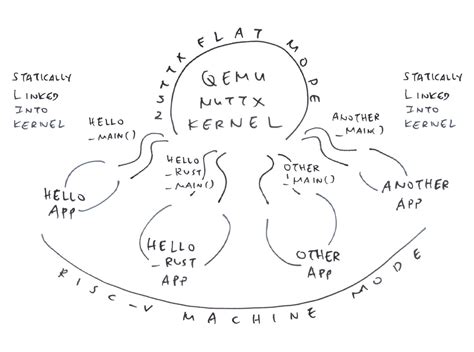 NUTTX FLAT MODE
QEMU
NUTTX
KERNEL
STATICALLY
LINKED
INTO
KERNEL
STATICALLY
LINKED
INTO
KERNEL
HELLO
_MAIN()
HELLO
_RUST
_MAIN()
OTHER
_MAIN()
ANOTHER
_MAIN()
HELLO
APP
HELLO
_RUST
APP
OTHER
APP
ANOTHER
APP
RISC-V MACHINE MODE